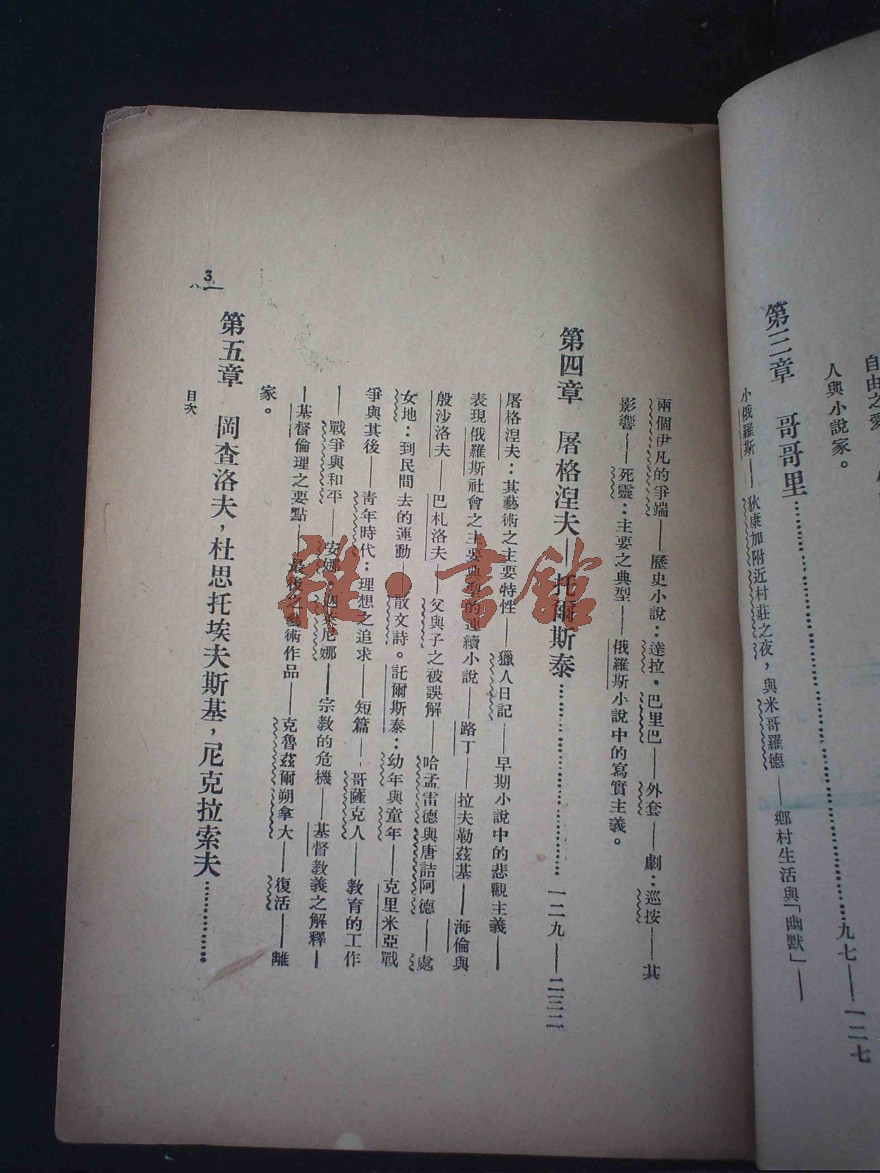 自由之愛
人與小說家。
第三章 哥哥里…………九七——一二七
小俄羅斯——狄康加附近村莊之夜,與米哥羅德——鄉村生活與「幽默」——
兩個伊凡的爭端——歷史小說:達拉·巴里巴——外套——劇:巡按——其
影響——死靈:主要之典型——俄羅斯小說中的寫實主義。
第四章 屠格涅夫——托爾斯泰…………一二九——二三二
屠格涅夫:其藝術之主要特性——獵人日記——早期小說中的悲觀主義——
表現俄羅斯社會之主要典型的連續小說——路丁——拉夫勒茲基——海倫與
殷沙洛夫——巴札洛夫——父與子之被誤解——哈孟雷德與唐詰阿德——處
女地:到民間去的運動——散文詩。託爾斯泰:幼年與童年——克里米亞戰
爭與其後——青年時代:理想之追求——短篇——哥薩克人——教育的工作
——戰爭與和平——安娜·迦萊尼娜——宗教的危機——基督教義之解釋——
——基督倫理之要點——最後之藝術作品——克魯茲爾朔拿大——復活——離
家。
第五章 岡查洛夫,杜思托埃夫斯基,尼克拉索夫…………
目次
3
雜·書館